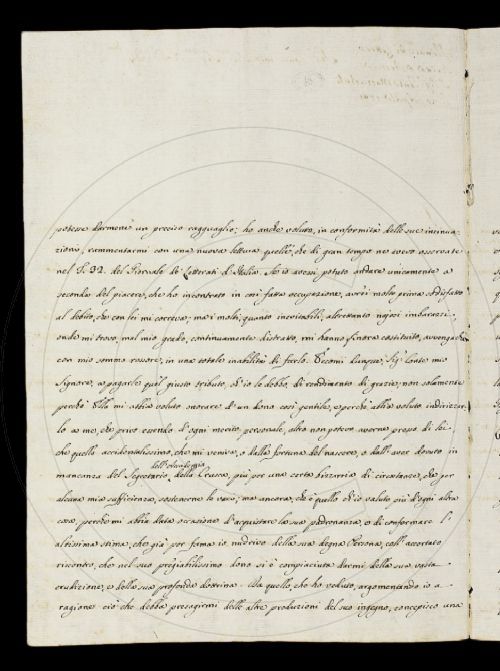 potesse darmene un preciso ragguaglio; ho anche voluto, in conformità delle sue insinua-
zioni, rammentarmi con una nuova lettura quelle, che di gran tempo ne avevo osservate
nel T. 32. del Giornale de' Letterati d'Italia. Se io avessi potuto andare unicamente a
seconda del piacere, che ho incontrato in così fatta occupazione, avrei molto prima sodisfatto
al debito, che con lei mi correva; ma i molti, quanto inevitabili, altrettanto nojosi imbarazzi
onde mi trovo, mal mio grado, continuamente distratto, mi hanno finora costituito, avvengachè
con mio sommo rossore, in una totale inabilità di farlo. Eccomi dunque, Sig. Conte mio
Signore, a pagarle quel giusto tributo, ch'io le debbo, di rendimento di grazie, non solamente
perchè Ella mi abbia voluto onorare d'un dono così gentile, e perchè abbia voluto indirizzar-
lo a me, che privo essendo d'ogni merito personale, altro non poteva averne presso di lei
che quello accidentalissimo, che mi veniva, o dalla fortuna del nascere, o dall'aver dovuto in
dell'
mancanza del Segretario della Crusca, più per una certa bizzarria di circostanze, che per
alcuna mia sufficienza, sostenerne le veci; ma ancora, che è quello ch'io valuto più d'ogni altra
cosa, perchè mi abbia data occasione d'acquistare la sua padronanza, e di confermare l'
altissima stima, che già per fama io nudrivo della sua degna Persona, coll'accertato
riscontro, che nel suo pregiabilissimo dono si è compiaciuta darmi della sua vasta
erudizione, e della sua profonda dottrina. Da quello, che ho veduto, argomentando io a
ragione ciò che debba presagirmi delle altre produzioni del suo ingegno, concepisco una